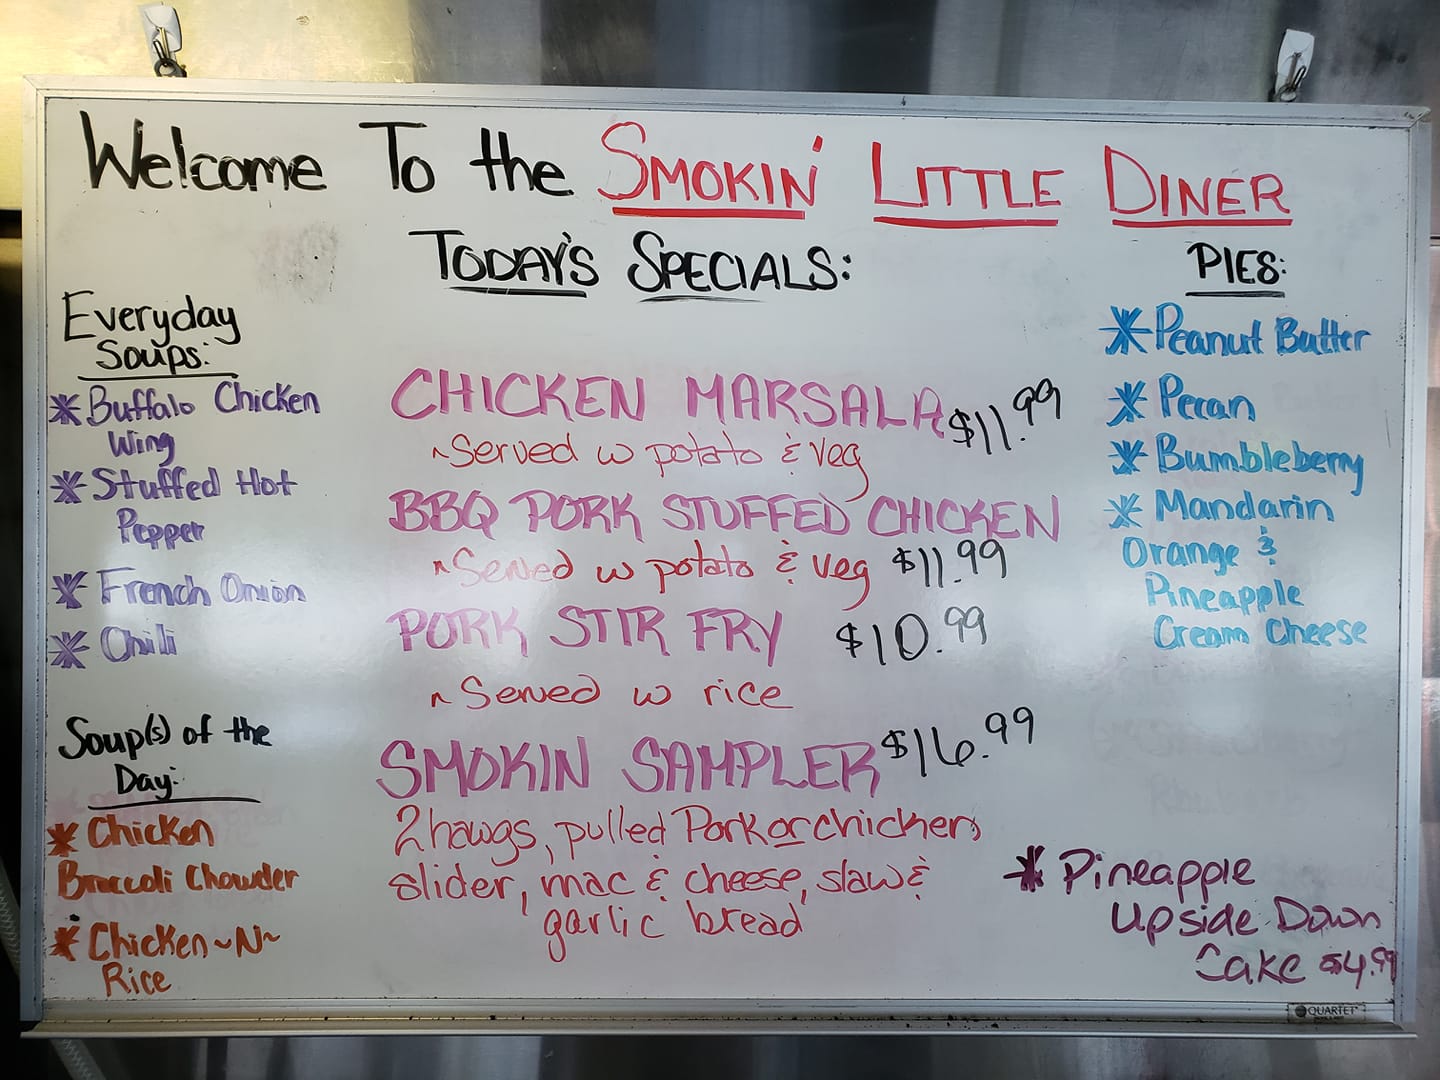 Welcome To the SMOKIN' LITTLE DINER
TODAY'S SPECIALS:
Everyday
Soups:
* Buffalo Chicken
Wing
* Stuffed Hot
Pepper
* French Onion
* Chili
Soup(s) of the
Day:
* Chicken
Broccoli Chowder
* Chicken~N~
Rice
CHICKEN MARSALA $11.99
~Served w potato & veg
BBQ PORK STUFFED CHICKEN
~Served w potato & veg $11.99
PORK STIR FRY $10.99
~Served w rice
SMOKIN SAMPLER $16.99
2 hawgs, pulled Pork or chicken
slider, mac & cheese, slaw &
garlic bread
PIES:
* Peanut Butter
* Pecan
* Bumbleberry
* Mandarin
Orange &
Pineapple
Cream Cheese
* Pineapple
Upside Down
Cake $4.99
QUARTET